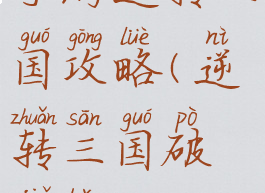 guó gōng lüè nì
国攻略(逆
zhuǎn sān guó pò
转三国破